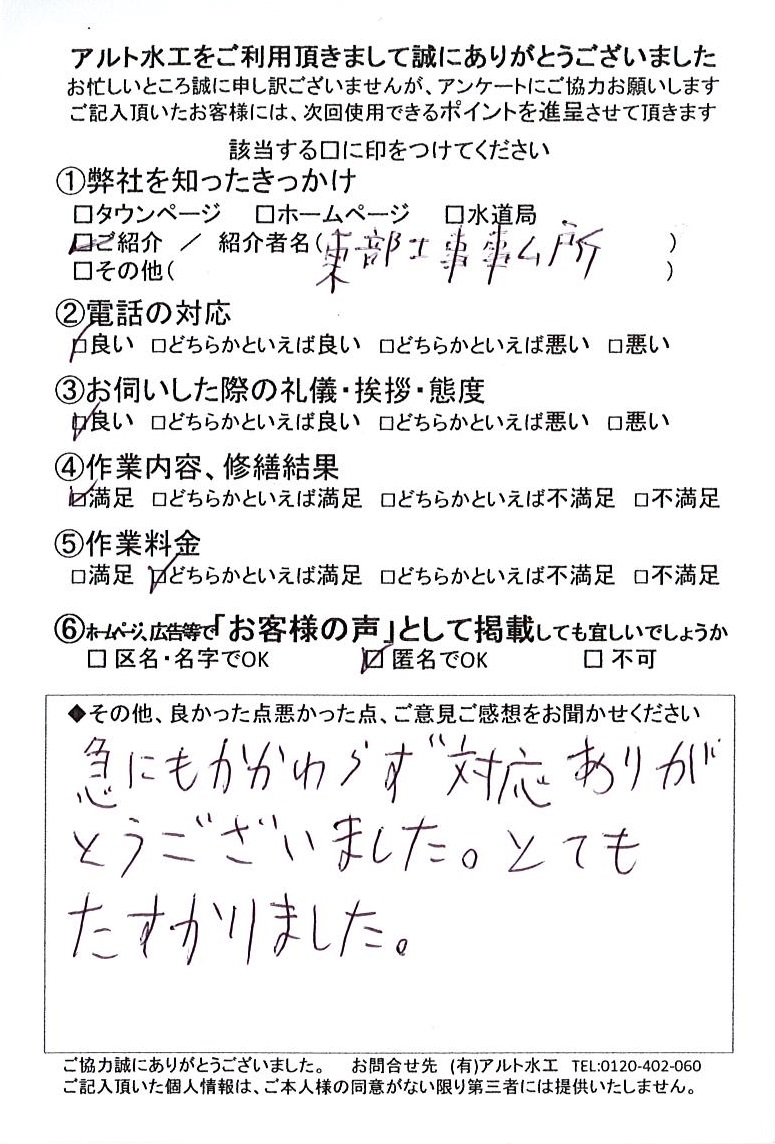 アルト水工をご利用頂きまして誠にありがとうございました
お忙しいところ誠に申し訳ございませんが、アンケートにご協力お願いします
ご記入頂いたお客様には、次回使用できるポイントを進呈させて頂きます
該当する□に印をつけてください
①弊社を知ったきっかけ
□タウンページ □ホームページ □水道局
☑ご紹介 / 紹介者名(東部工事事ム所)
□その他( )
②電話の対応
☑良い □どちらかといえば良い □どちらかといえば悪い □悪い
③お伺いした際の礼儀・挨拶・態度
☑良い □どちらかといえば良い □どちらかといえば悪い □悪い
④作業内容、修繕結果
☑満足 □どちらかといえば満足 □どちらかといえば不満足 □不満足
⑤作業料金
□満足 ☑どちらかといえば満足 □どちらかといえば不満足 □不満足
⑥ホームページ、広告等で「お客様の声」として掲載しても宜しいでしょうか
□ 区名・名字でOK ☑ 匿名でOK □ 不可
◆その他、良かった点悪かった点、ご意見ご感想をお聞かせください
急にもかかわらず対応ありが
とうございました。とても
たすかりました。
ご協力誠にありがとうございました。 お問合せ先 (有)アルト水工 TEL:0120-402-060
ご記入頂いた個人情報は、ご本人様の同意がない限り第三者には提供いたしません。